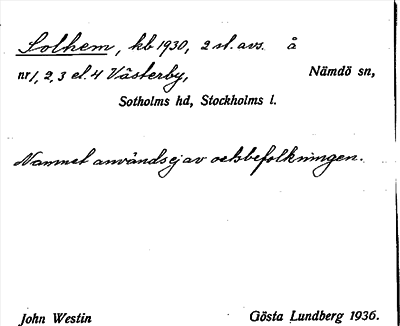 Solhem, kb 1930, 2 st. avs. å
nr 1, 2, 3 el. 4 Västerby, Nämdö sn,
Sotholms hd, Stockholms l.
Namnet användsej av ortsbefolkningen.
John Westin Gösta Lundberg 1936.